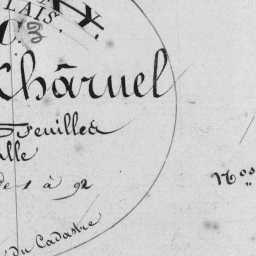 LAIS.
C.
Chāruel
Feuilles
lle
de 1 à 92
Nos
du Cadastre